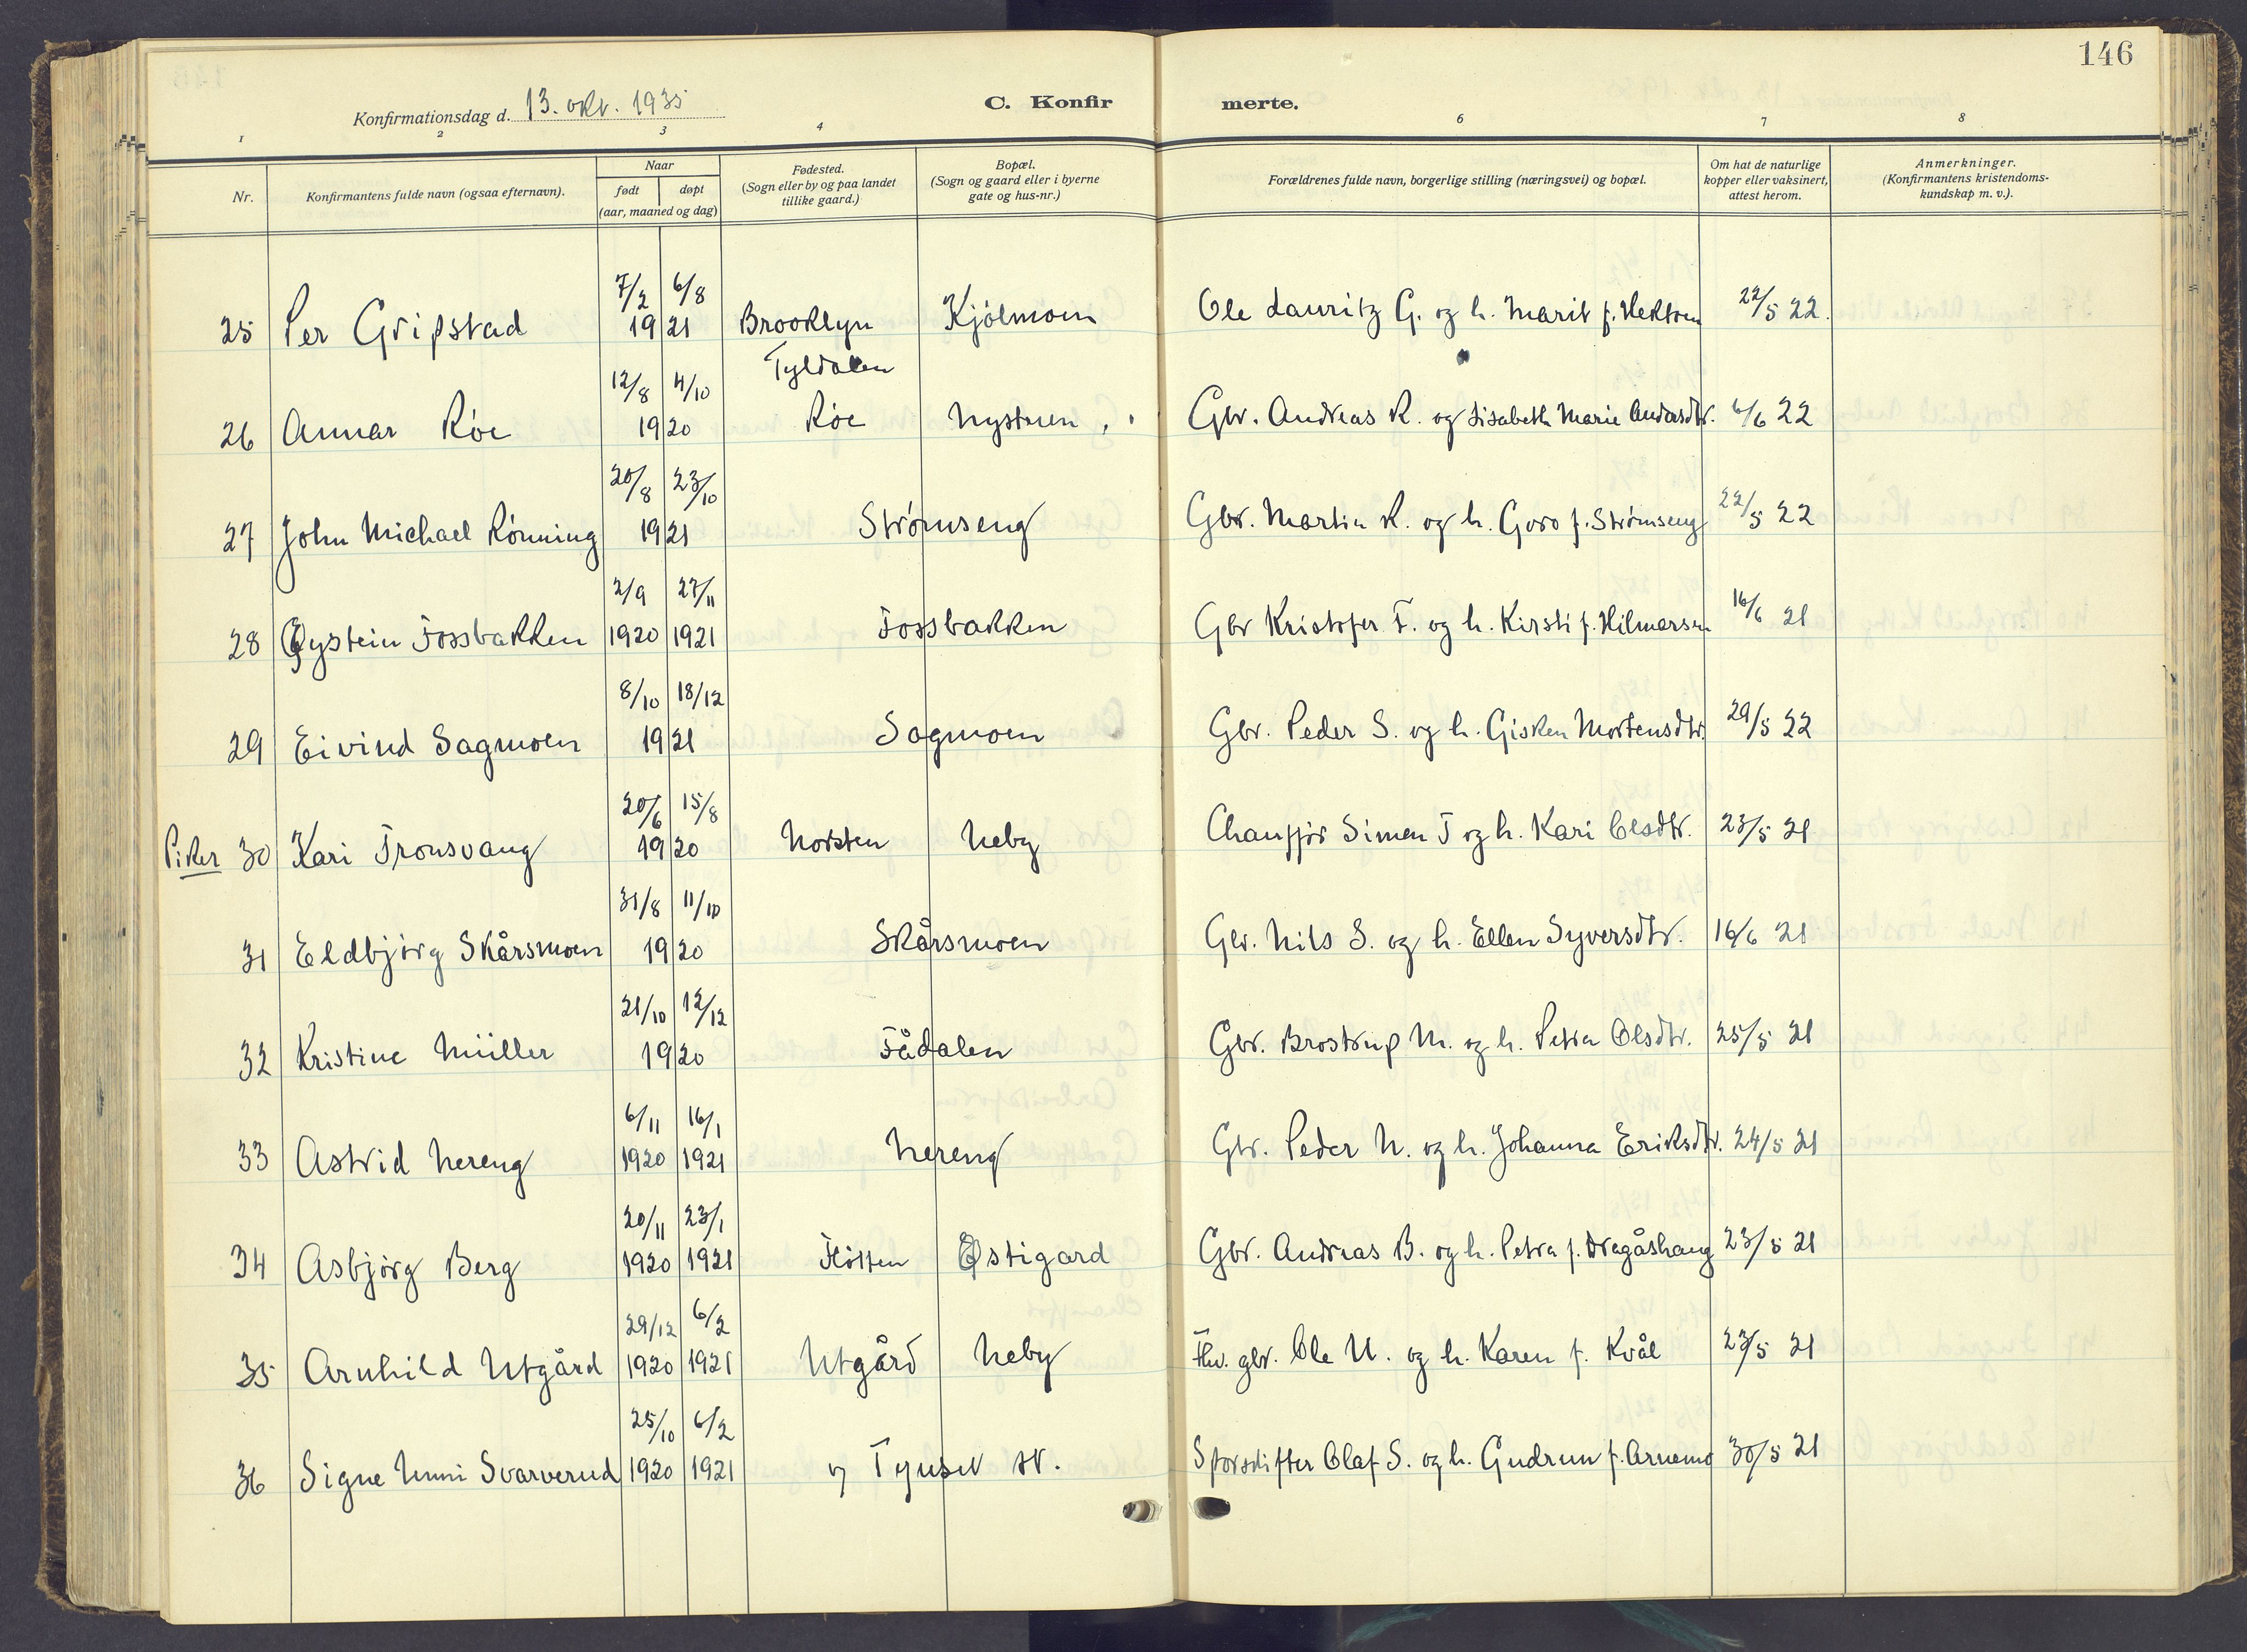 146
Konfirmationsdag d. 13. okt. 1935
C. Konfir merte.
1 2 3 4 6 7 8
Nr.
Konfirmantens fulde navn (ogsaa efternavn).
Naar
født døpt
(aar, maaned og dag)
Fødested.
(Sogn eller by og paa landet
tillike gaard.)
Bopæl.
(Sogn og gaard eller i byerne
gate og hus-nr.)
Forældrenes fulde navn, borgerlige stilling (næringsvei) og bopæl.
Om hat de naturlige
kopper eller vaksinert,
attest herom.
Anmerkninger.
(Konfirmantens kristendoms-
kundskap m. v.).
7/2 6/8
25 Per Gripstad 1921 Brooklyn Kjølmoen Ole Lauritz G. og h. Marit f. Hektoen 22/5 22.
12/8 4/10 Tyldalen
26 Annar Røe 1920 Røe Nystuen Gbr. Andreas R. og Lisabeth Marie Andersdtr. 6/6 22
20/8 23/10
27 John Michael Rønning 1921 Strømseng Gbr. Martin R. og h. Goro f. Strømseng 22/5 22
2/9 27/11
28 Øystein Fossbakken 1920 1921 Fossbakken Gbr Kristofer F. og h. Kirsti f. Hilmarsen 16/6 21
8/10 18/12
29 Eivind Sagmoen 1921 Sagmoen Gbr. Peder S. og h. Gisken Mortensdtr. 29/5 22
20/6 15/8
Piker 30 Kari Tronsvang 1920 Norsten Neby Chauffør Simen T og h. Kari Olsdtr. 23/5 21
31/8 11/10
31 Eldbjørg Skårsmoen 1920 Skårsmoen Gbr. Nils S. og h. Ellen Syversdtr. 16/6 21
21/10 12/12
32 Kristine Müller 1920 Fådalen Gbr. Brostrup M. og h. Petra Olsdtr. 25/5 21
6/11 16/1
33 Astrid Nereng 1920 1921 Nereng Gbr. Peder N. og h. Johanna Eriksdtr. 24/5 21
20/11 23/1
34 Asbjørg Berg 1920 1921 Flötten Østigard Gbr. Andreas B. og h. Petra f. Dragåshaug 23/5 21
29/12 6/2
35 Arnhild Utgård 1920 1921 Utgård Neby Fhv. gbr. Ole U. og h. Karen f. Kvål 23/5 21
25/10 6/2
36 Signe Unni Svarverud 1920 1921 Tynset st. Olaf S. og h. Gudrun f. Arnemo 30/5 21